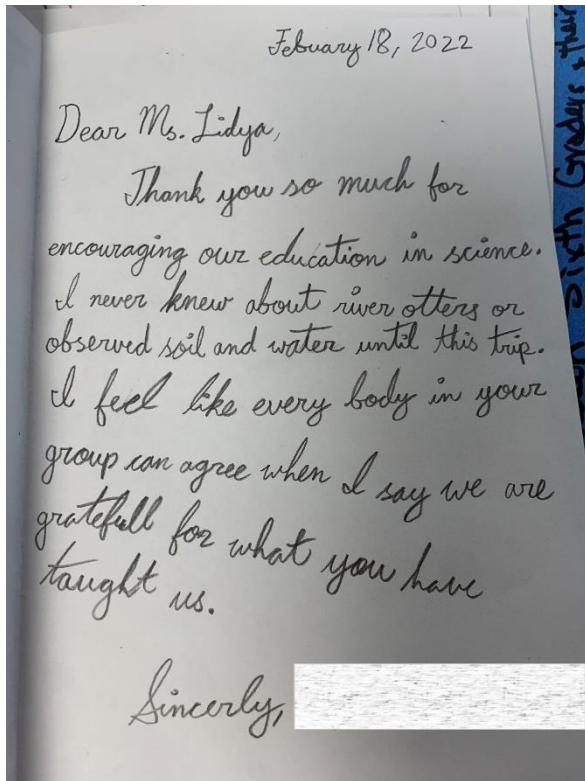 Febuary 18, 2022
Dear Ms. Lidya,
Thank you so much for
encouraging our education in science.
I never knew about river otters or
observed soil and water until this trip.
I feel like every body in your
group can agree when I say we are
gratefull for what you have
taught us.
Sincerly,
Sixth Graders & their